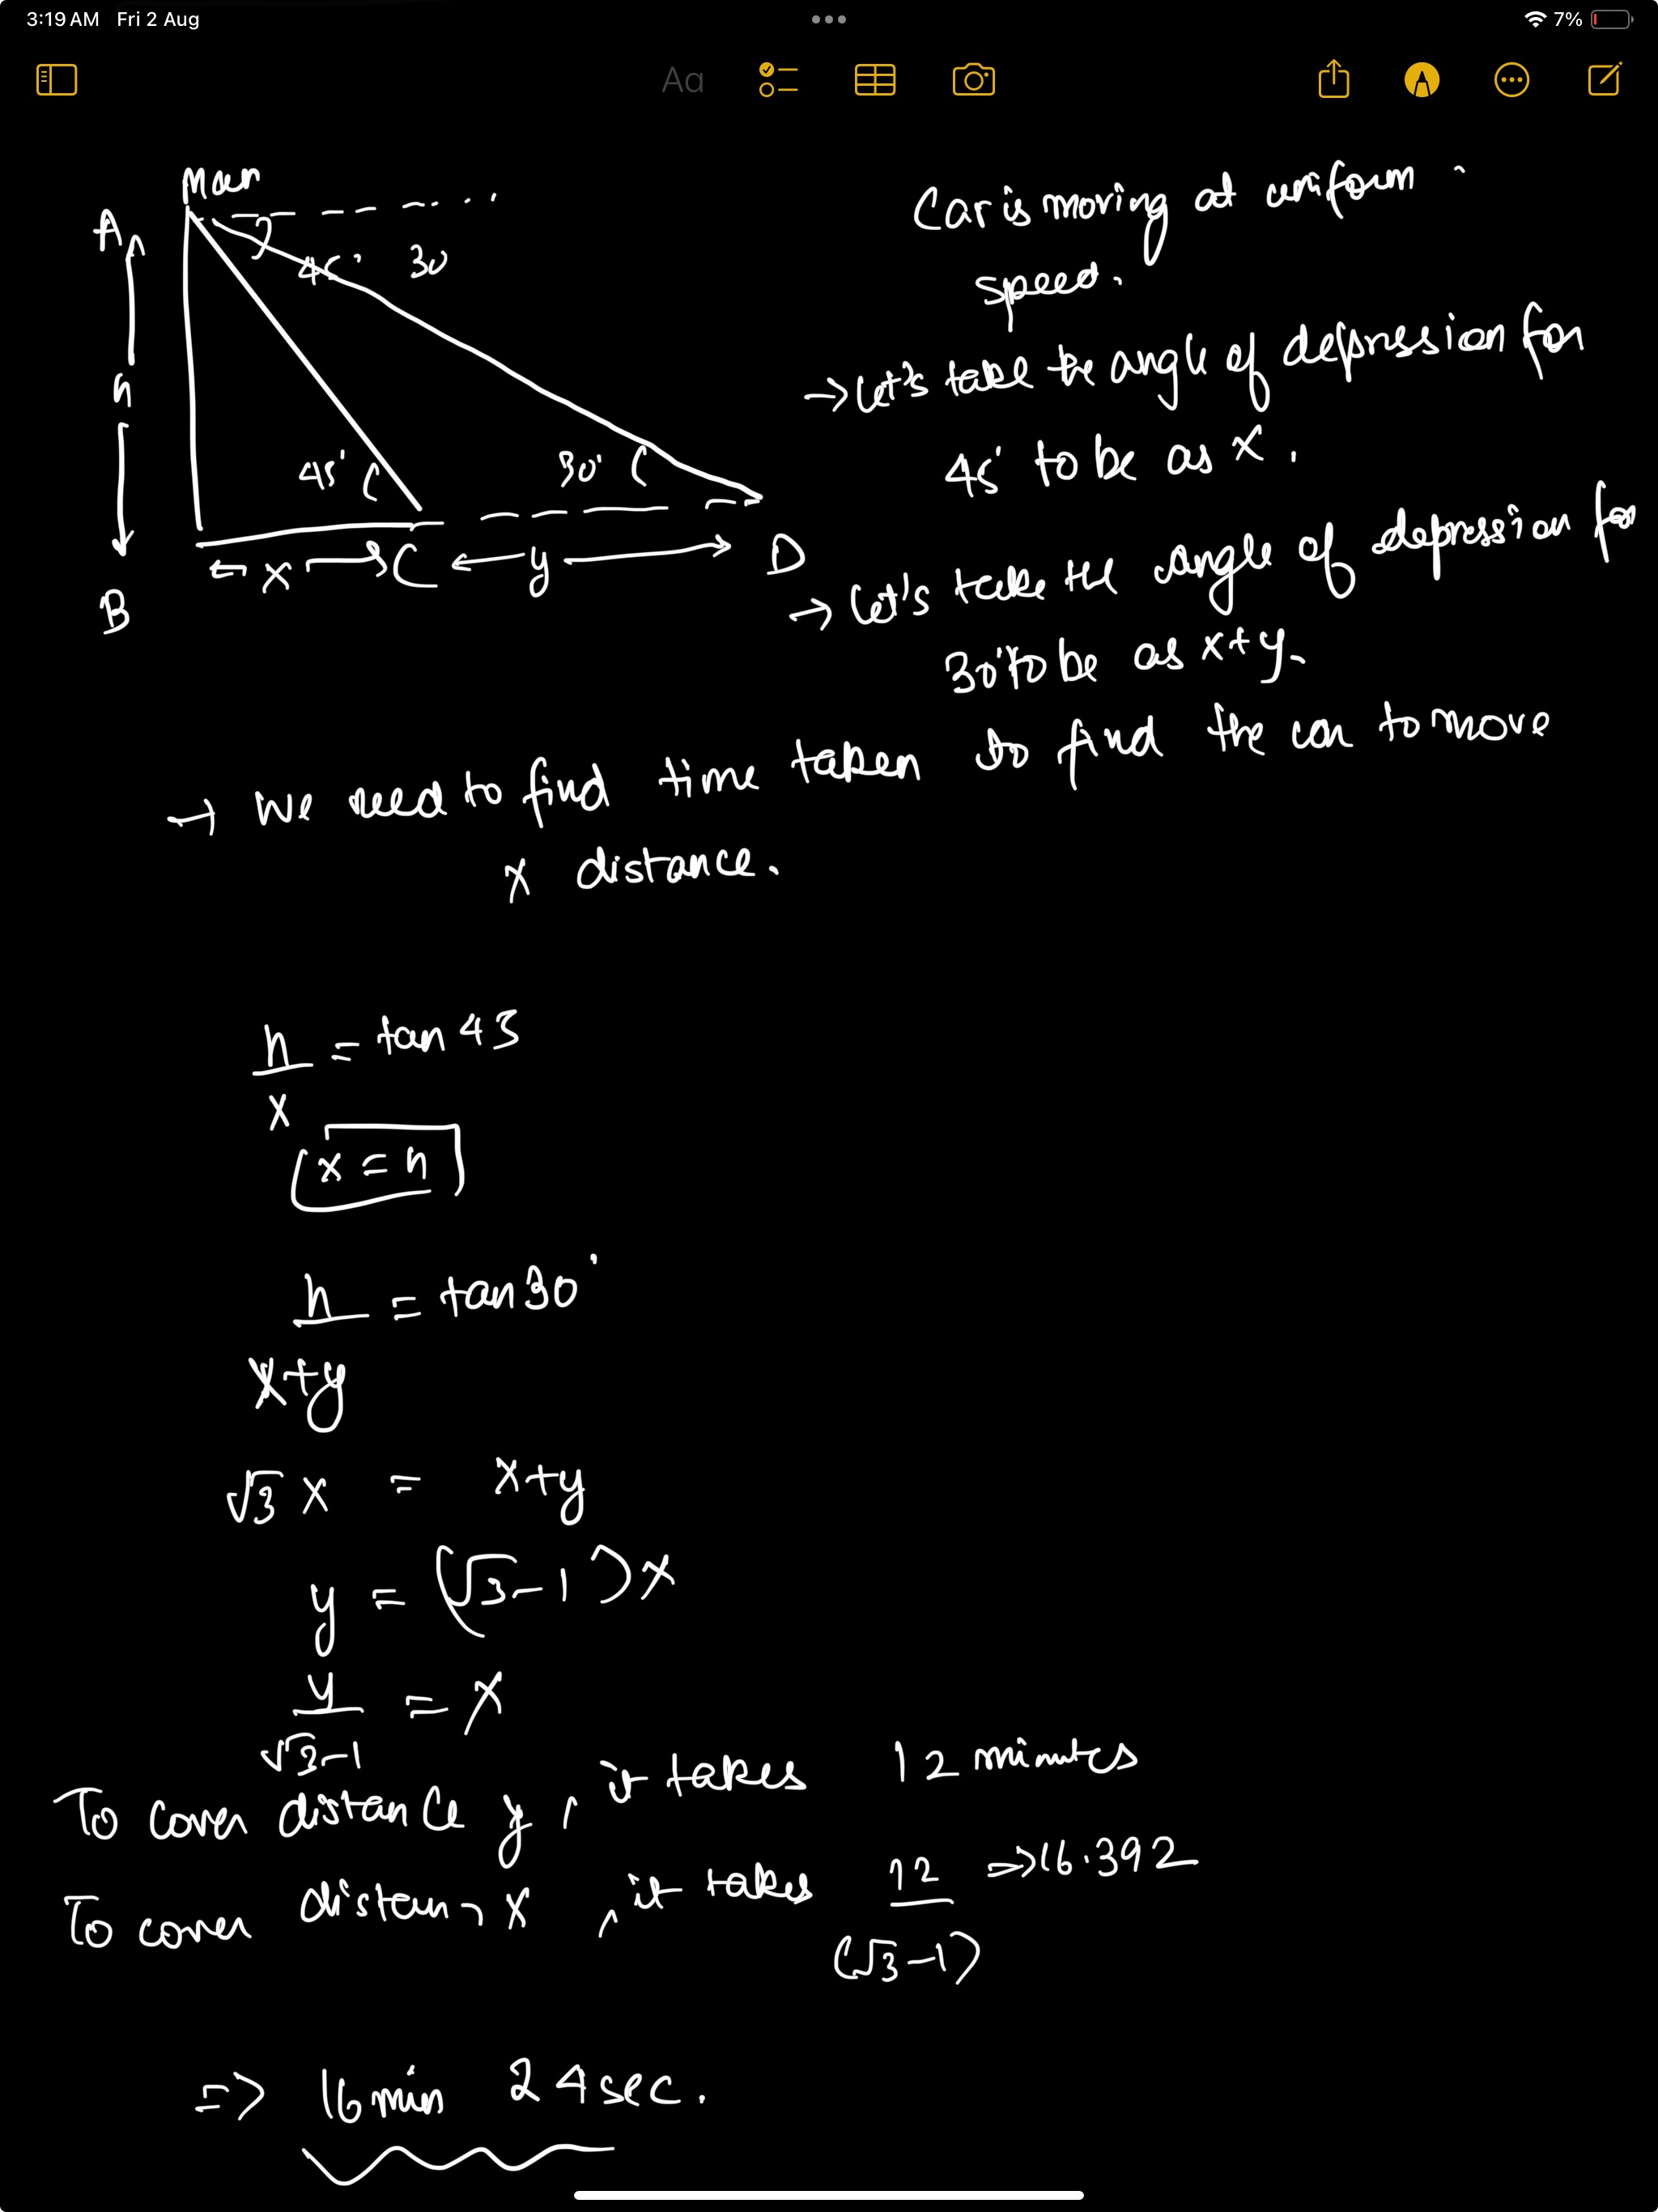 3:19 AM Fri 2 Aug
7%
Aa
Man
A
45° 30
h
45°
30°
x
C
y
D
B
Car is moving at uniform
speed.
→ Let's take the angle of depression for
45° to be as x.
→ Let's take the angle of depression for
30° to be as x+y.
→ We need to find time taken to find the car to move
x distance.
h = tan 45
x
x = h
h = tan 30°
x+y
√3 x = x+y
y = (√3-1)x
y = x
√3-1
To cover distance y, it takes 12 minutes
To cover distan, x, it takes 12 ⇒ 16.392
(√3-1)
=> 16 min 24 sec.